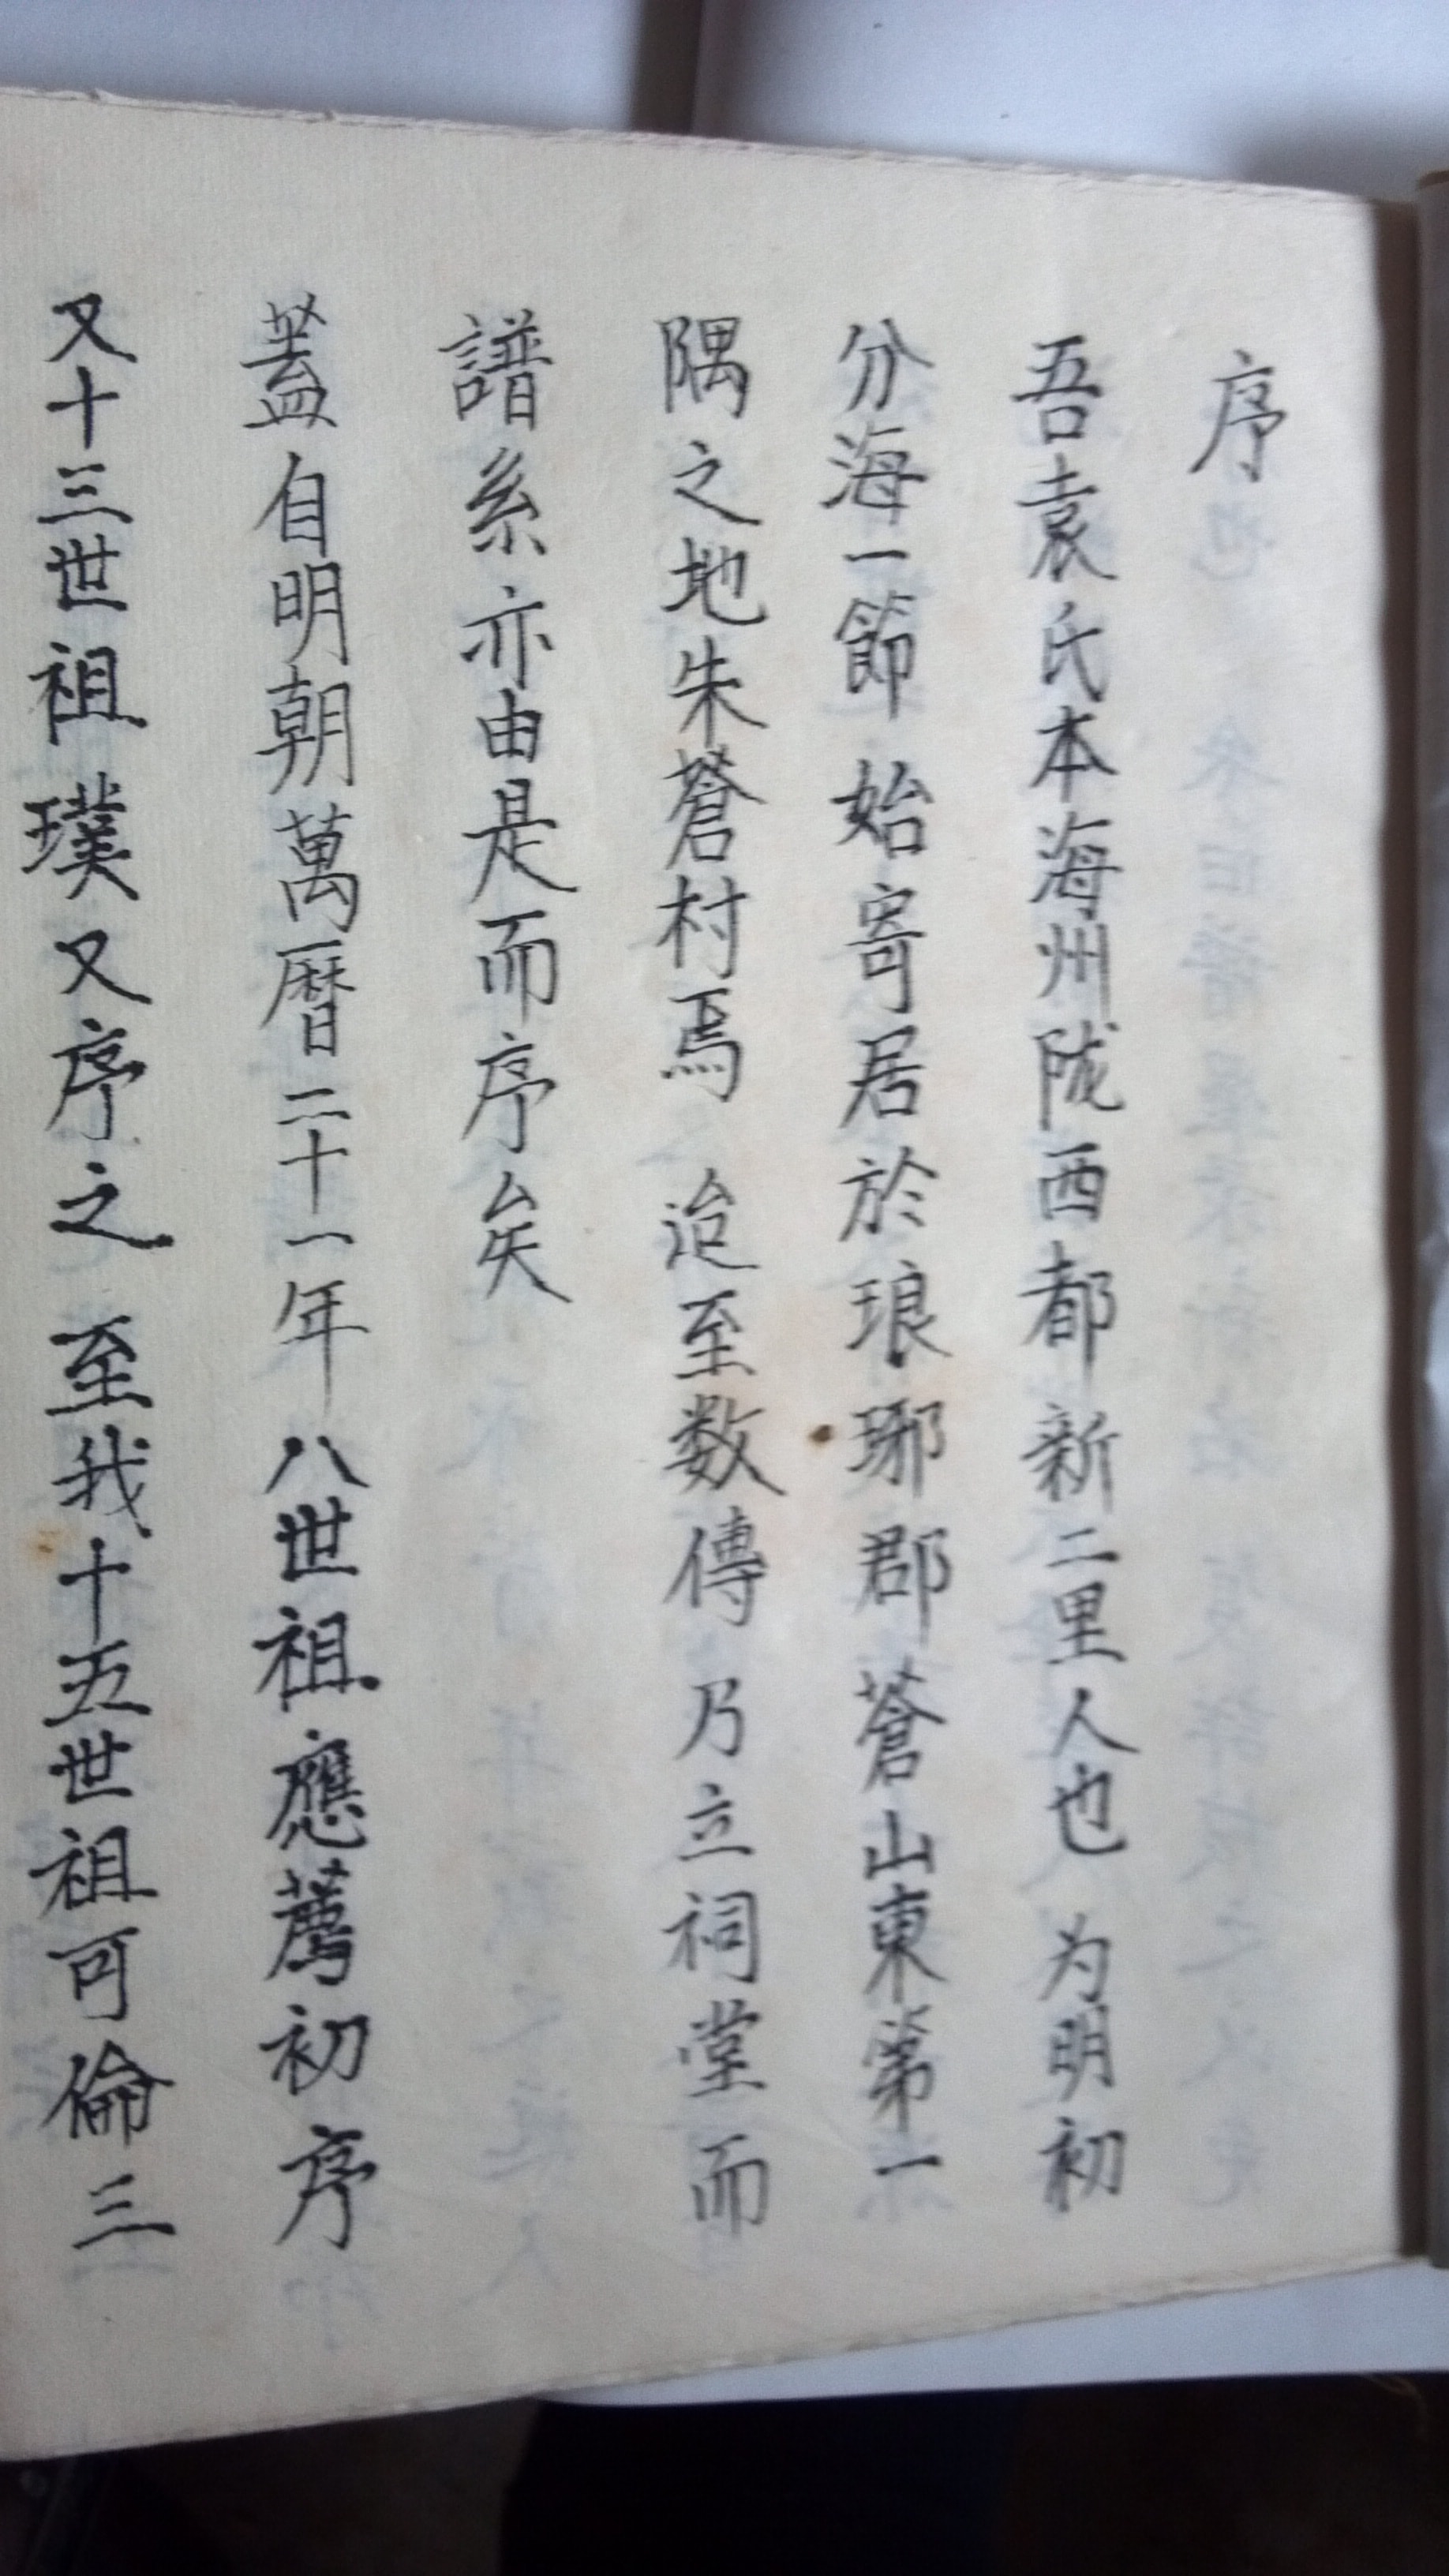 序
吾袁氏本海州陇西都新二里人也 为明初
分海一節 始寄居於琅琊郡蒼山東第一
隅之地朱蒼村焉 迨至数傳 乃立祠堂而
譜系亦由是而序矣
蓋自明朝萬曆二十一年 八世祖應薦初序
又十三世祖璞又序之 至我十五世祖可倫三